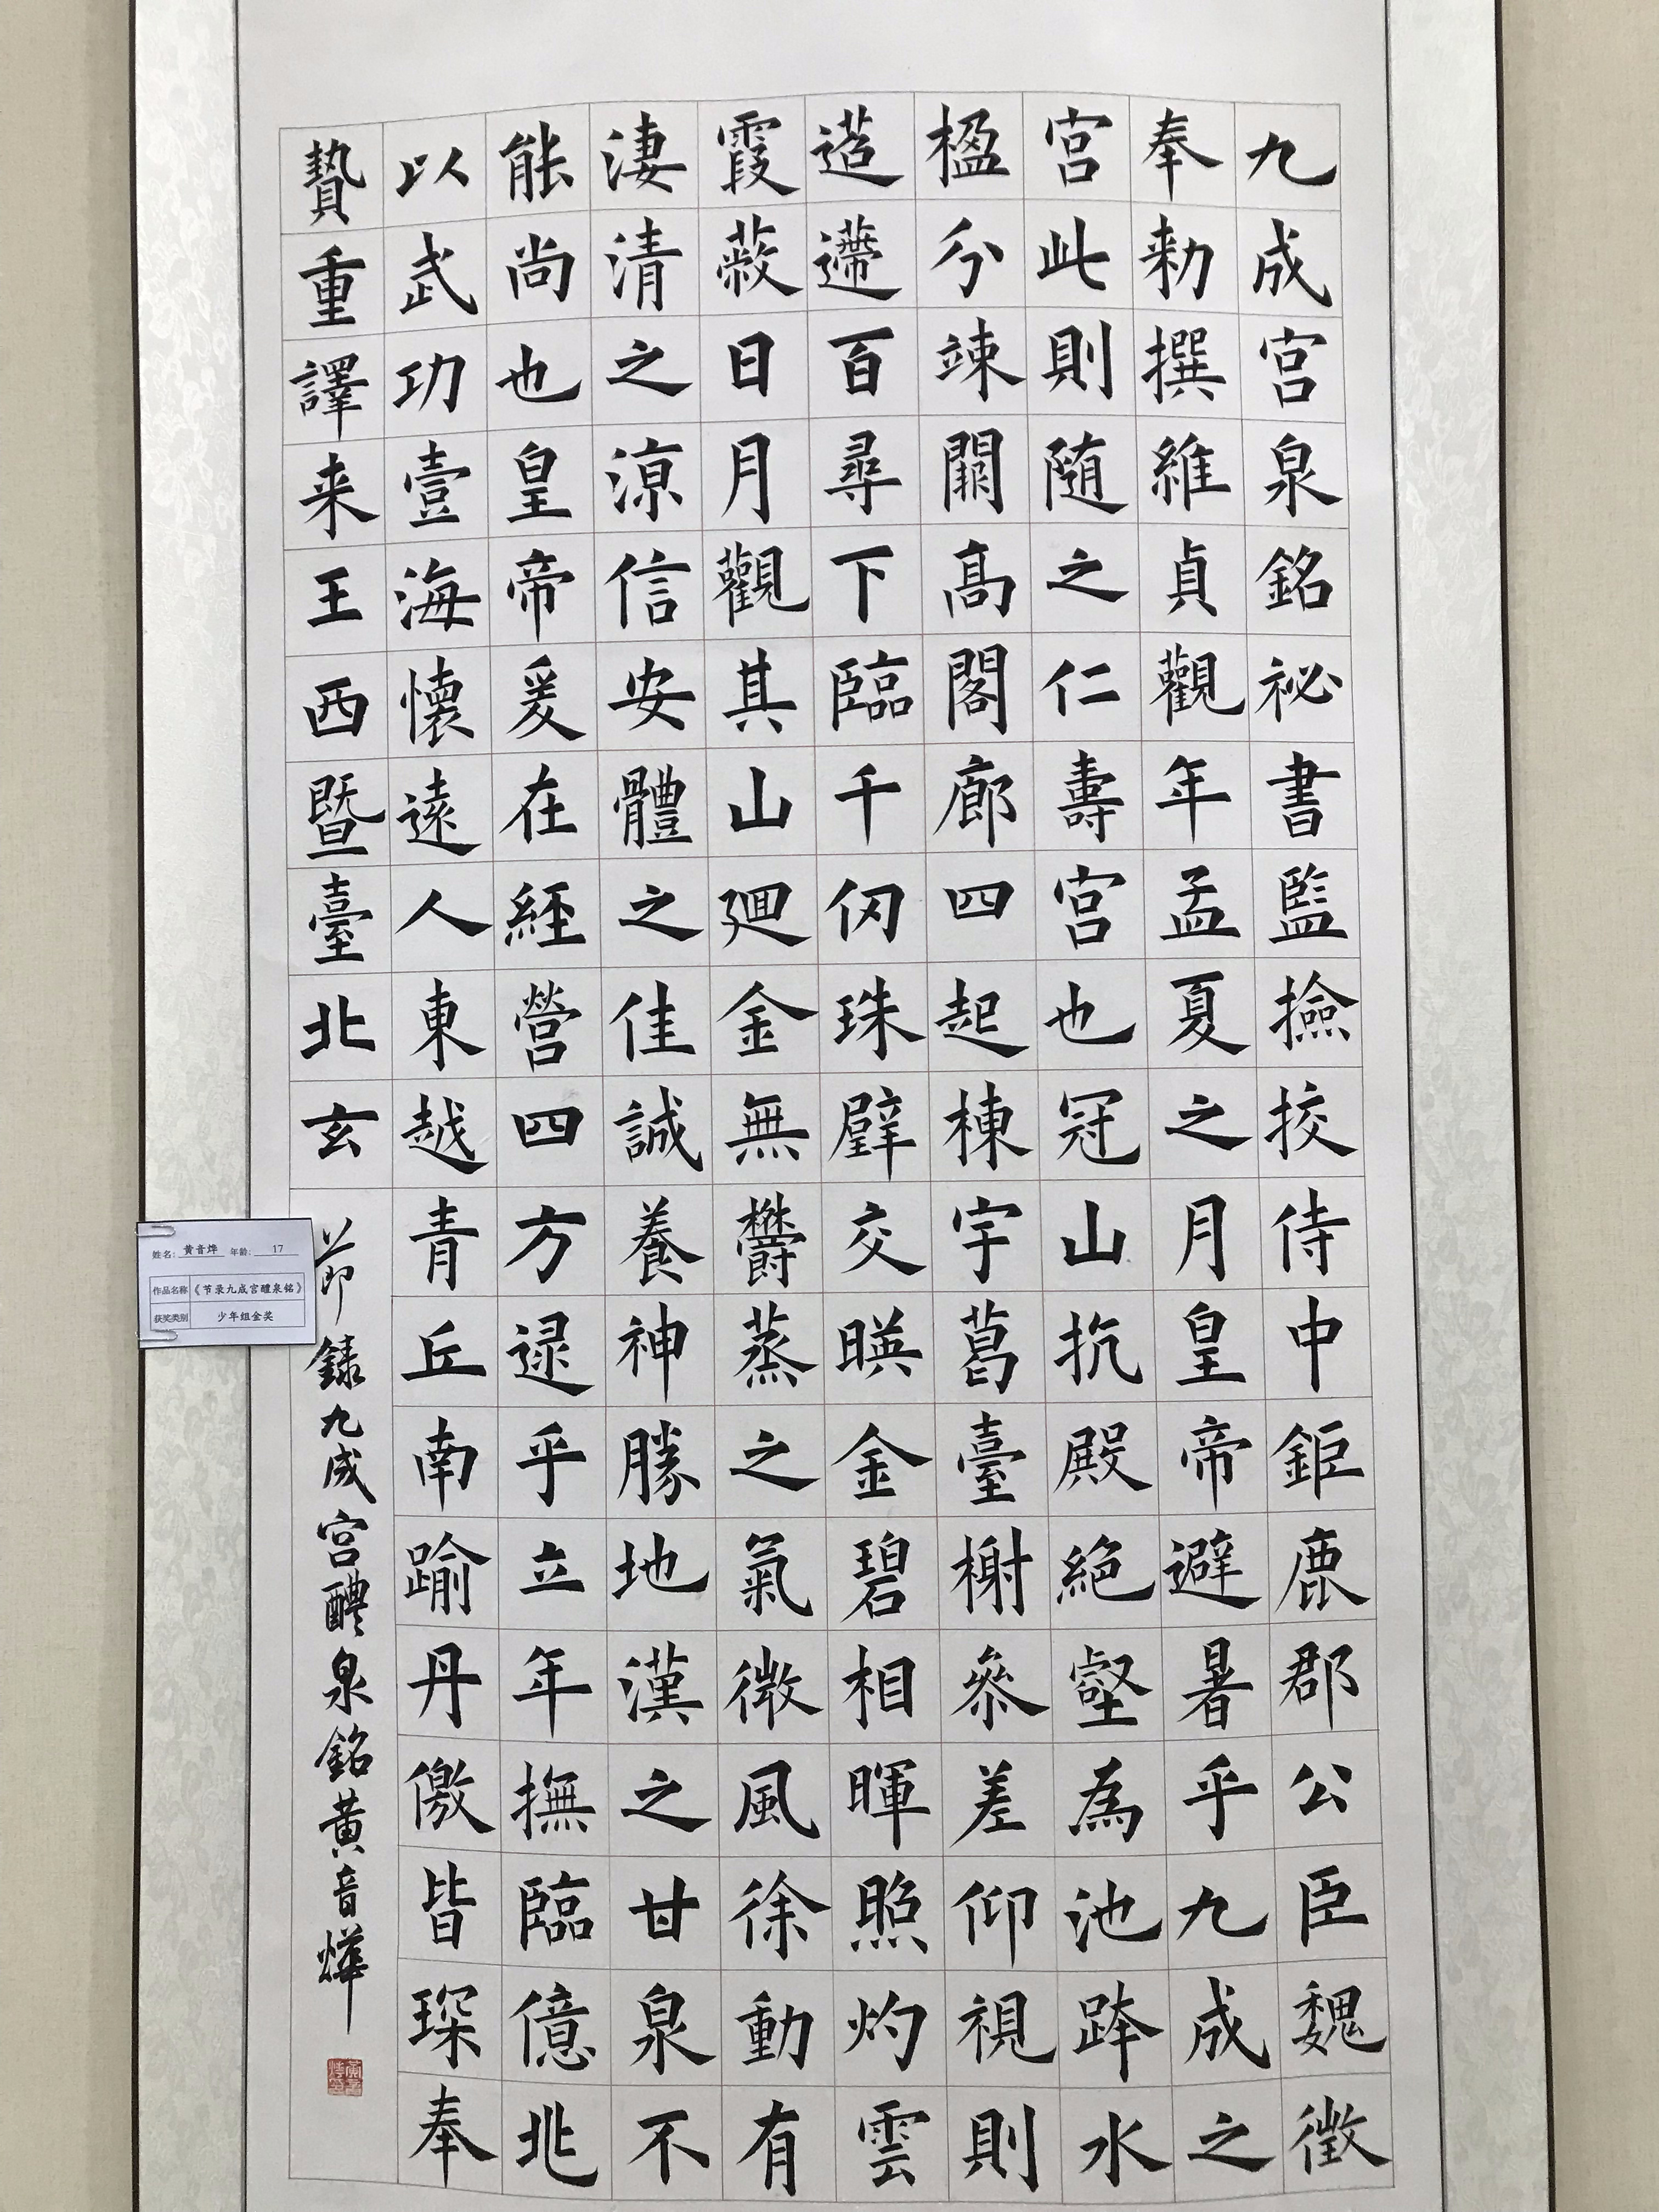 九成宫泉銘祕書監撿挍侍中鉅鹿郡公臣魏徵
奉勅撰維貞觀年孟夏之月皇帝避暑乎九成之
宫此則随之仁壽宫也冠山抗殿絶壑為池跨水
楹分竦闕高閣廊四起棟宇葛臺榭叅差仰視則
迢遰百尋下臨千仞珠璧交暎金碧相暉照灼雲
霞蔽日月觀其山廻金無欝蒸之氣微風徐動有
淒清之涼信安體之佳誠養神勝地漢之甘泉不
能尚也皇帝爰在経營四方逯乎立年撫臨億兆
以武功壹海懷遠人東越青丘南踰丹儌皆琛奉
贄重譯来王西暨臺北玄
節録九成宫醴泉銘黄音燁
姓名：黄音烨 年龄：17
作品名称《节录九成宫醴泉铭》
获奖类别 少年组金奖